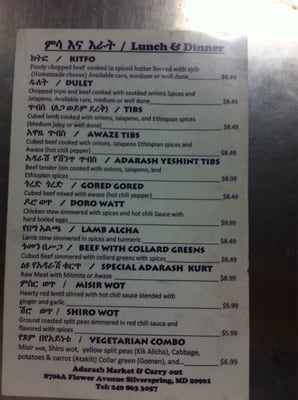 ምሳ እና እራት / Lunch & Dinner
ክትፎ / KITFO
Finely chopped beef cooked in spiced butter Served with ayib
(Homemade cheese) Available rare, medium or well done $8.49
ዱለት / DULET
Chopped tripe and beef cooked with onions Spices and
Jalapeno. Available rare, medium or well done $8.49
ጥብስ / TIBS
Cubed lamb cooked with onions, Jalapeno, and Ethiopian spices
(Medium juicy or well done) $8.49
አዋዜ ጥብስ / AWAZE TIBS
Cubed beef cooked with onions, Jalapeno Ethiopian spices and
Awaze (hot chili pepper) $8.49
አዳራሽ የሽንጥ ጥብስ / ADARASH YESHINT TIBS
Beef tender loin cooked with onions, Jalapeno, and
Ethiopian spices $8.99
ጎረድ ጎረድ / GORED GORED
Cubed beef mixed with awaze (hot chili pepper) $8.49
ዶሮ ወጥ / DORO WATT
Chicken stew simmered with spices and hot chili Sauce with
hard boiled eggs $9.99
የበግ አልጫ / LAMB ALCHA
Lamb stew simmered in spices and turmeric $8.49
ጎመን በሥጋ / BEEF WITH COLLARD GREENS
Cubed Beef simmered with collard greens and spices $8.49
ልዩ የአዳራሽ ቁርጥ / SPECIAL ADARASH KURT
Raw Meat with Mitmita or Awaze $8.99
ምስር ወጥ / MISIR WOT
Hearty red lentil stirred with hot chili sauce blended with
ginger and garlic $5.99
ሽሮ ወጥ / SHIRO WOT
Ground roasted split peas simmered in red chili sauce and
flavored with spices $5.99
የጾም በየአይነቱ / VEGETARIAN COMBO
Misir wot, Shiro wot, yellow split peas (Kik Alicha), Cabbage,
potatoes & carrot (Atakilt) Collar green (Gomen), and... $6.99
Adarash Market & Carry out
8706A Flower Avenue Silverspring, MD 20901
Tel: 240 863 3057